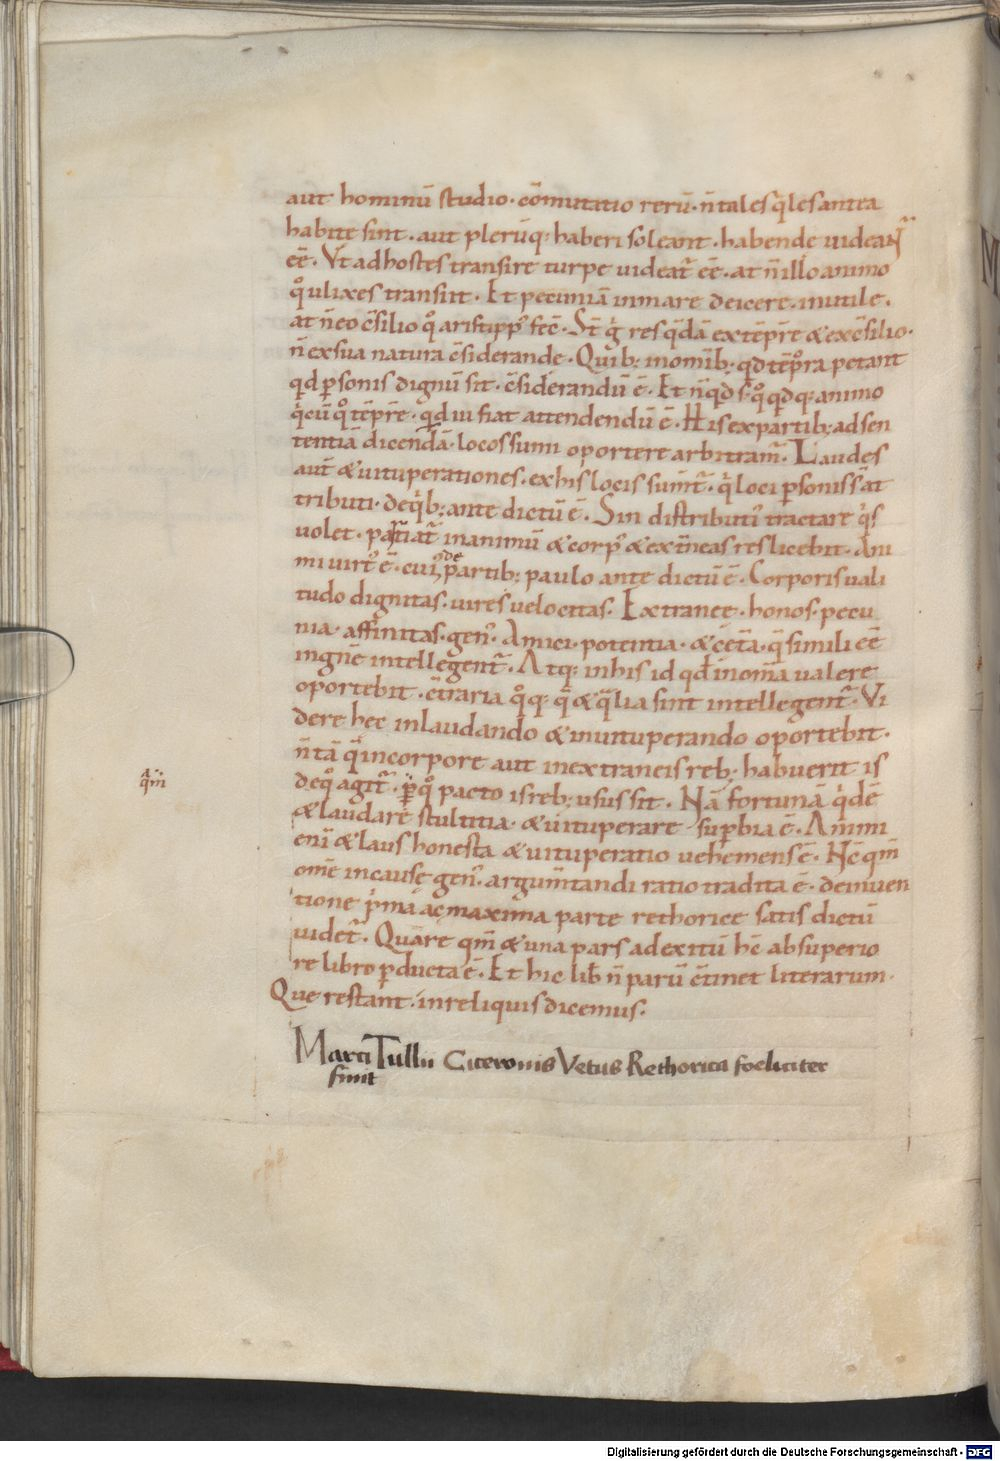 aut hominū studio · cōmutatio rerū · n̄ tales q̄les antea
habite sint · aut plerūq; haberi soleant · habende uideant᷑
eē · Vt ad hostes transire turpe uideat᷑ eē · at n̄ illo animo
qͦ ulixes transiit · Et pecuniā in mare deicere · inutile ·
at n̄ eo c̄silio qͦ aristippꝰ fec̄ · St̄ gͥ res q̄dā ex tēpr̄e & ex c̄silio ·
n̄ ex sua natura c̄siderande · Quib; in omīb; qd tēpͦra petant
qd ꝑsonis dignū sit · c̄siderandū ē · Et n̄ qd s; qͦ qdq; animo
qͥcū qͦ tēpr̄e · qdiu fiat attendendū ē · His ex partib; ad sen
tentiā dicendā · locos sumi oportere arbitram̄ · Laudes
aut̄ & uituperationes · ex his locis sumt᷑ · qͥ loci ꝑsonis s̄ at
tributi · de qͥb; ante dictū ē · Sin distributiꝰ tractare qͥs
uolet · partiat᷑ in animū & corpꝰ & ext̄neas res licebit · Ani
mi uirtꝰ ē · cuiꝰ de partib; paulo ante dictū ē · Corporis uali
tudo dignitas · uires uelocitas · Extranee · honos · pecu
nia · affinitas · genꝰ · Amici · potentia · & cēta · q̄ simili eē
in gn̄e intellegent᷑ · Atq; in his id qd in om̄ia ualere
oportebit · c̄traria qͦq; q̄ & q̄lia sint intellegent᷑ · Vi
dere hec in laudando & in uituperando oportebit ·
n̄ tā q̄ in corpore aut in extraneis reb; habuerit is
de qͦ agit᷑ · ꝑ qͦ pacto is reb; usus sit · Nā fortunā qͥdē
& laudare stultitia · & uituperare suꝑbia ē · Animi
enī & laus honesta & uituperatio uehemens ē · Nc̄ qm̄
om̄e in cause genꝰ · argum̄tandi ratio tradita ē · de inuen
tione pͥma ac maxima parte rethorice satis dictū
uidet᷑ · Quare qm̄ & una pars ad exitū hc̄ ab superio
re libro ꝑducta ē · Et hic lib̄ n̄ parū c̄tinet literarum ·
Que restant · in reliquis dicemus ·
qm̄
Marci Tullii Ciceronis Vetus Rethorica foeliciter
finit
Digitalisierung gefördert durch die Deutsche Forschungsgemeinschaft - DFG